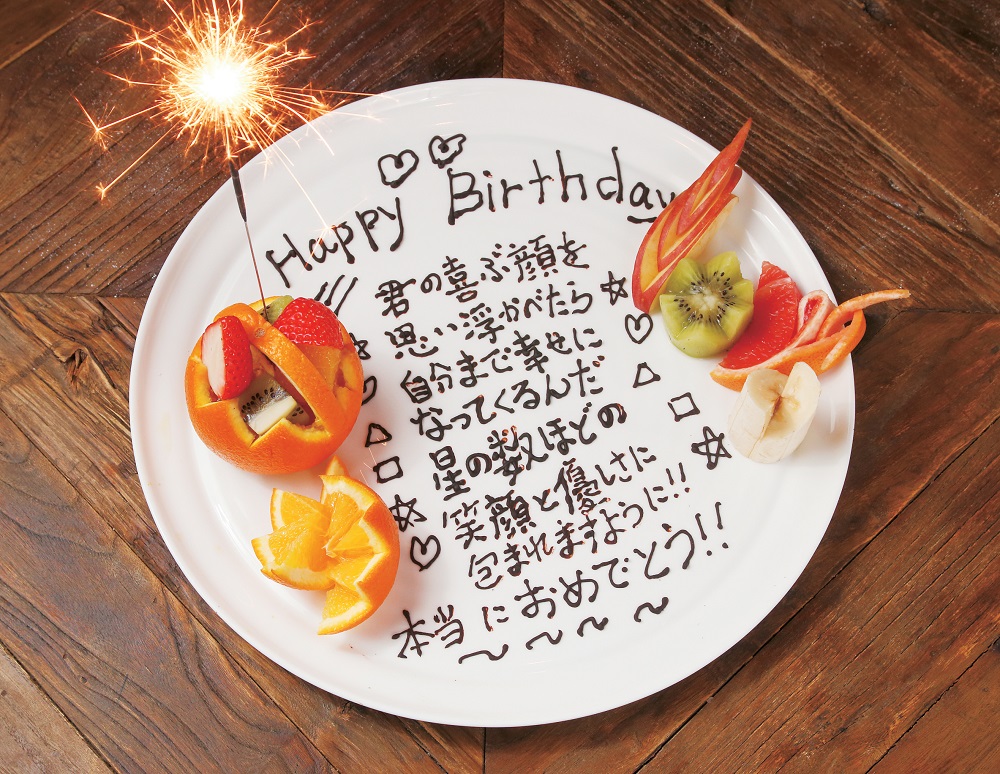 Happy Birthday
君の喜ぶ顔を
思い浮かべたら
自分まで幸せに
なってくるんだ
星の数ほどの
笑顔と優しさに
包まれますように!!
本当におめでとう!!